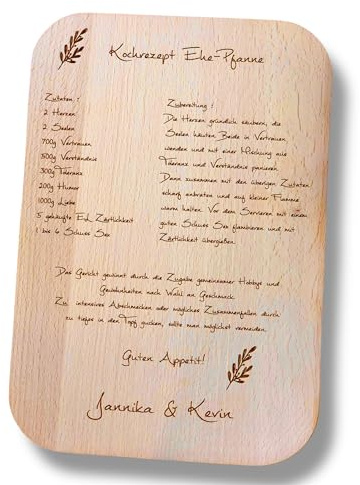 Kochrezept Ehe-Pfanne
Zutaten :
2 Herzen
2 Seelen
700g Vertrauen
500g Verständnis
300g Toleranz
200g Humor
1000g Liebe
5 gehäufte Eßl. Zärtlichkeit
1 bis 6 Schuss Sex
Zubereitung :
Die Herzen gründlich säubern, die
Seelen häuten. Beide in Vertrauen
wenden und mit einer Mischung aus
Toleranz und Verständnis panieren.
Dann zusammen mit den übrigen Zutaten
scharf anbraten und auf kleiner Flamme
warm halten. Vor dem Servieren mit einem
guten Schuss Sex flambieren und mit
Zärtlichkeit übergießen.
Das Gericht gewinnt durch die Zugabe gemeinsamer Hobbys und
Gewohnheiten nach Wahl an Geschmack.
Zu intensives Abschmecken oder mögliches Zusammenfallen durch
zu tiefes in den Topf gucken, sollte man möglichst vermeiden.
Guten Appetit!
Jannika & Kevin